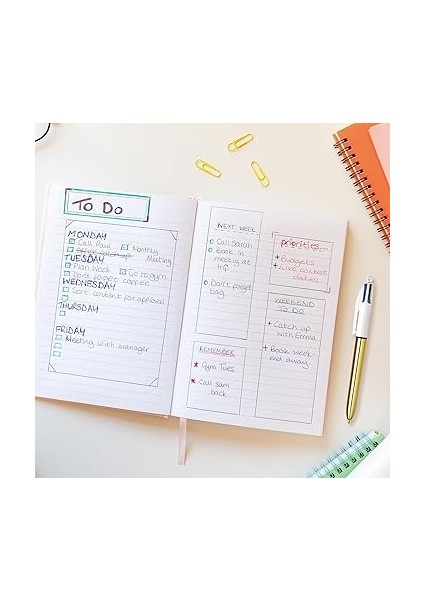 To Do
MONDAY
Call Paul Monthly
Meeting
TUESDAY
Plan Week Go to gym
Don't forget coffee
WEDNESDAY
Sent content for approval
THURSDAY
FRIDAY
Meeting with manager
NEXT WEEK
Call Sarah
Book in
meeting at
Don't forget
bag
REMEMBER
Gym Tues
Call Sam
back
priorities...
Budgets
Live content
dates
WEEKEND
TO DO
Catch up
with Emma
Book week-
end away